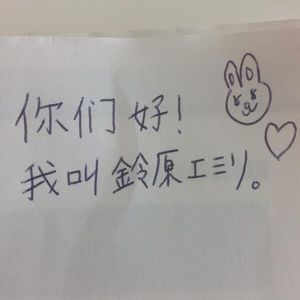 你们好!
我叫鈴原エミリ。